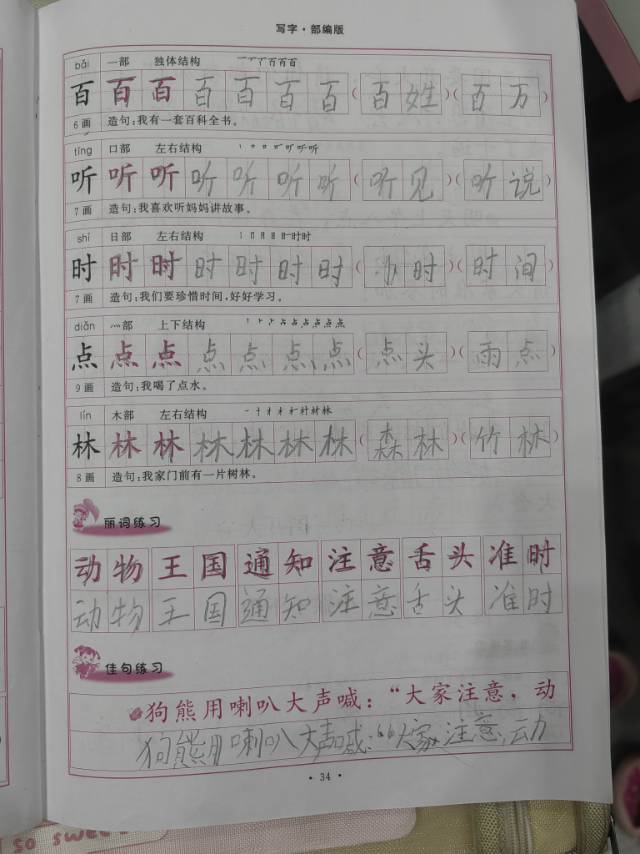 写字·部编版
bǎi 一部 独体结构
百 百 百 百 百 百 百 (百姓)(百万)
6画 造句:我有一套百科全书。
tīng 口部 左右结构
听 听 听 听 听 听 听 (听见)(听说)
7画 造句:我喜欢听妈妈讲故事。
shí 日部 左右结构
时 时 时 时 时 时 时 (小时)(时间)
7画 造句:我们要珍惜时间,好好学习。
diǎn 灬部 上下结构
点 点 点 点 点 点 点 (点头)(雨点)
9画 造句:我喝了点水。
lín 木部 左右结构
林 林 林 林 林 林 林 (森林)(竹林)
8画 造句:我家门前有一片树林。
丽词练习
动物 王国 通知 注意 舌头 准时
动物 王国 通知 注意 舌头 准时
佳句练习
狗熊用喇叭大声喊:“大家注意,动
狗熊用喇叭大声喊:“大家注意,动
·34·
so sweet